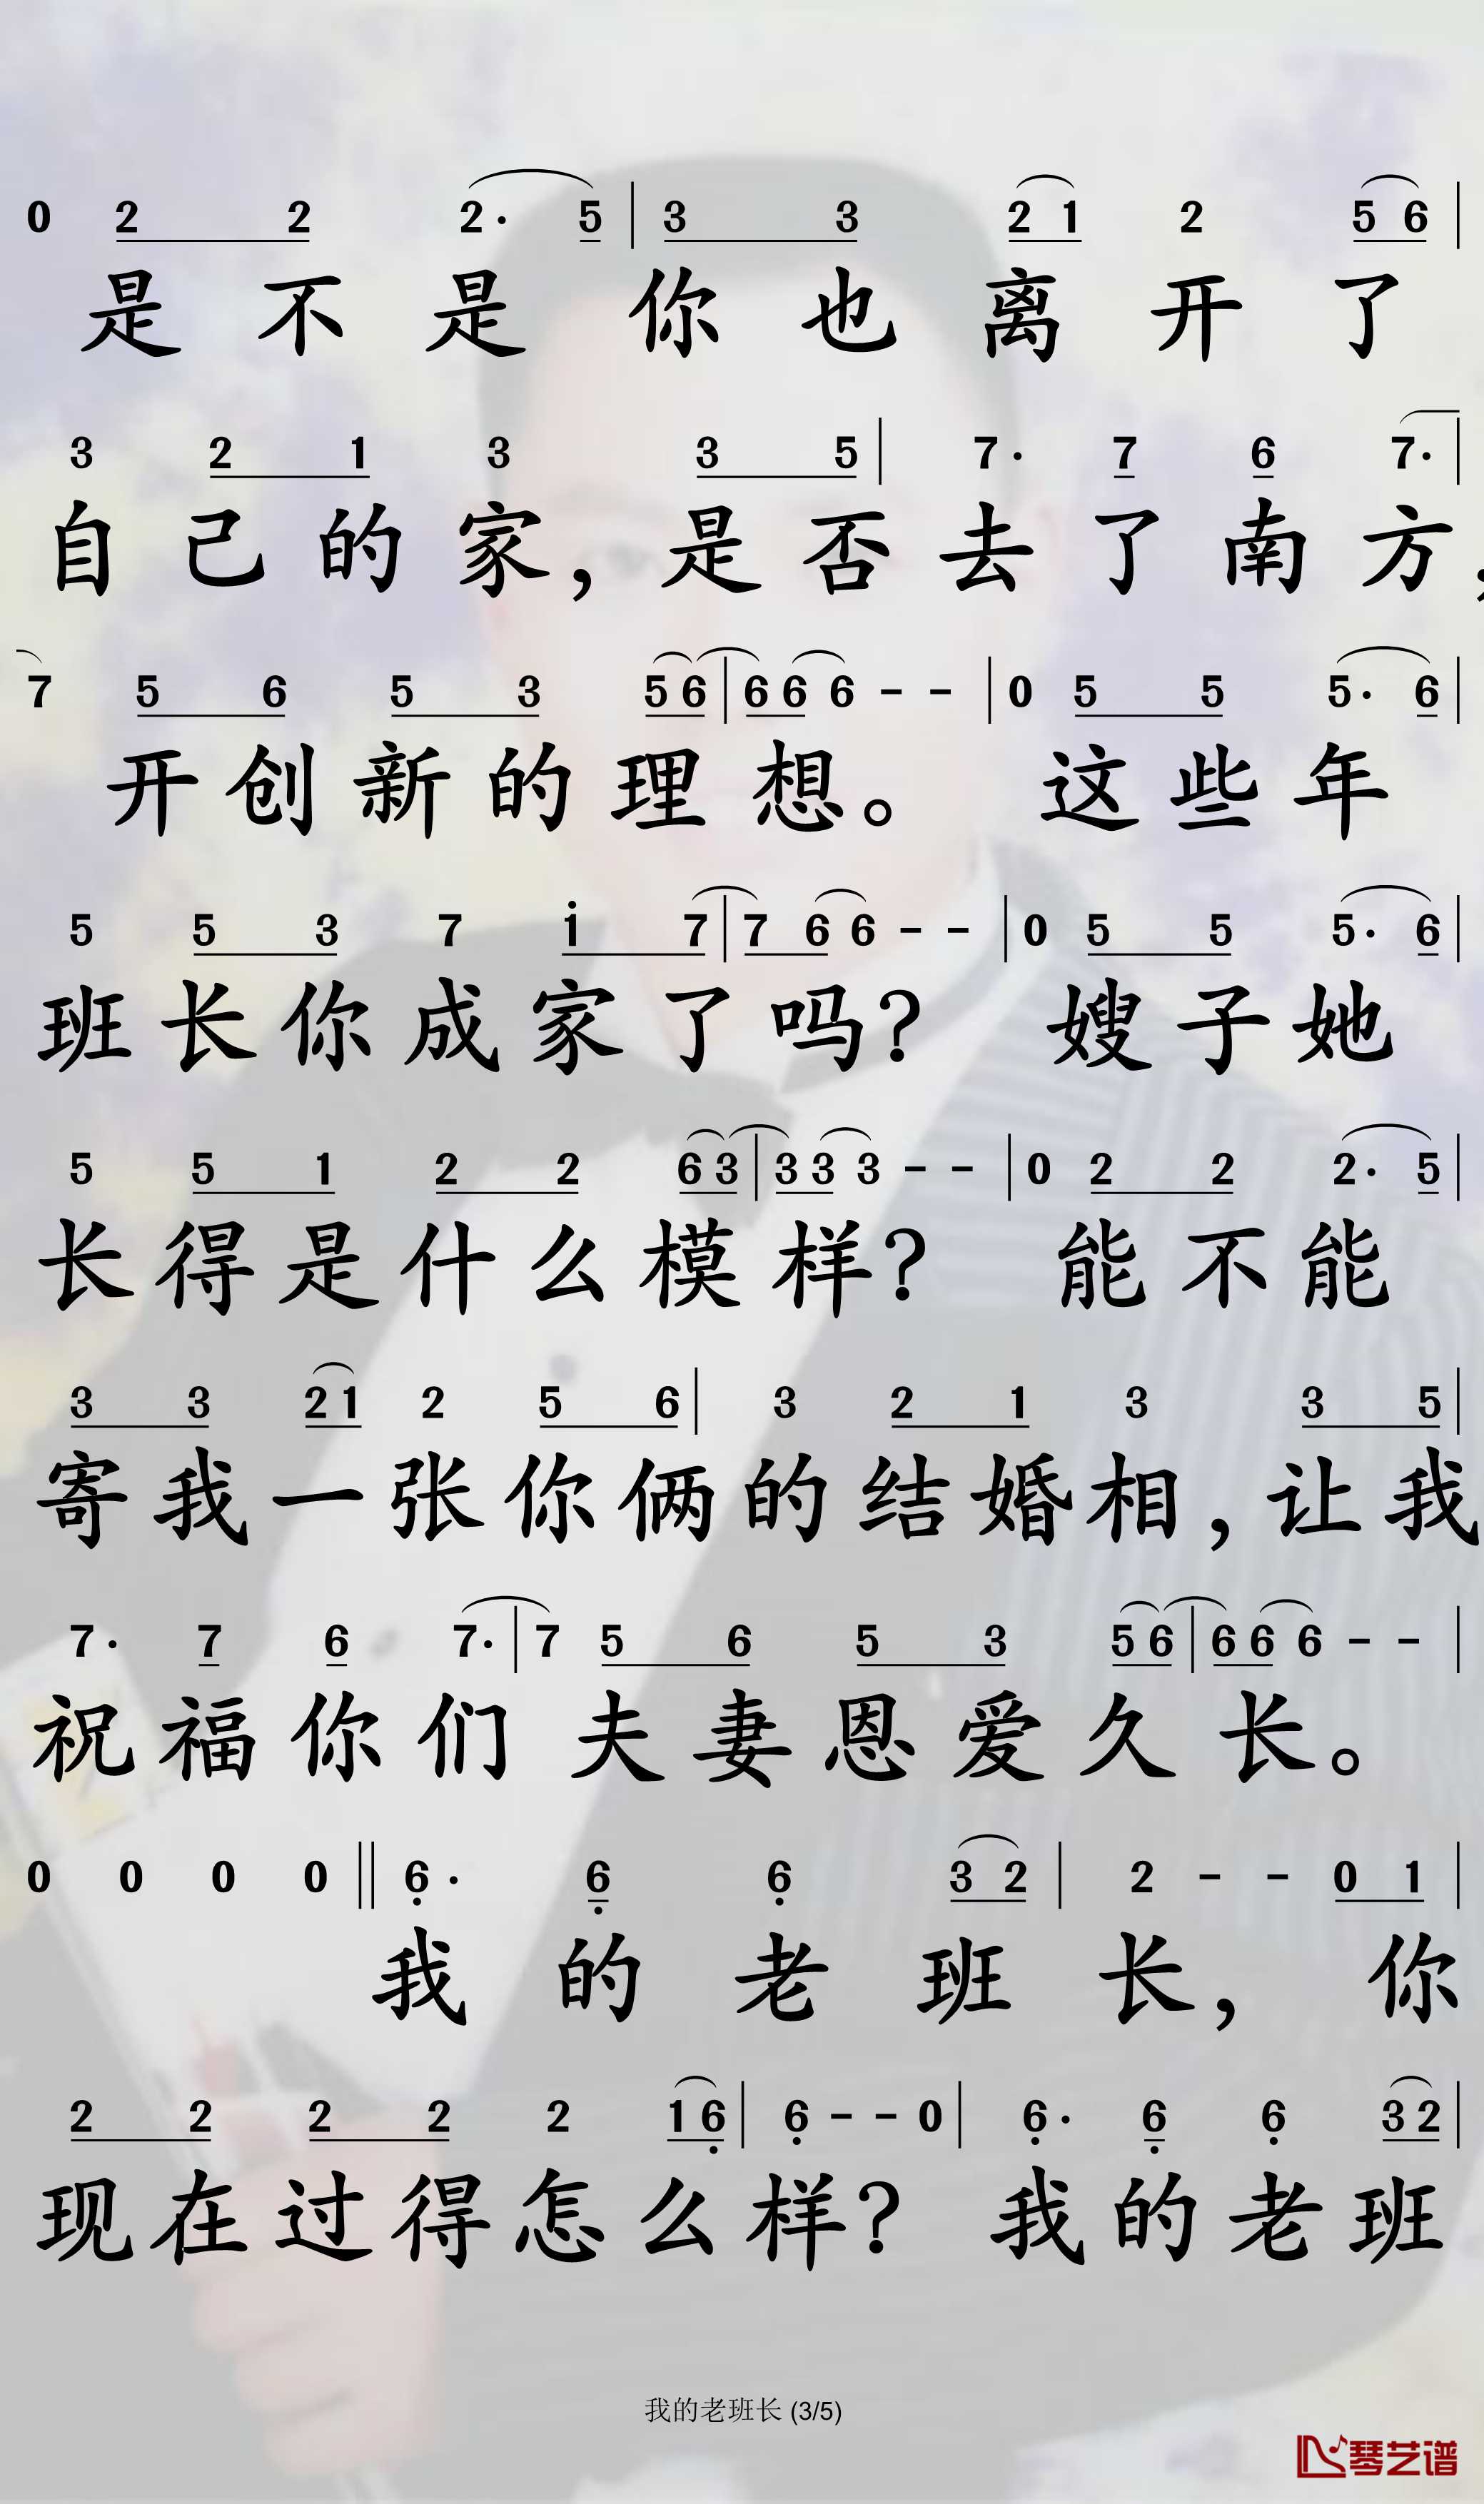 0 2 2 2· 5 | 3 3 2 1 2 5 6 |
是不是你也离开了
3 2 1 3 3 5 | 7· 7 6 7· |
自己的家，是否去了南方，
7 5 6 5 3 5 6 | 6 6 6 - - | 0 5 5 5· 6 |
开创新的理想。 这些年
5 5 3 7 i 7 | 7 6 6 - - | 0 5 5 5· 6 |
班长你成家了吗? 嫂子她
5 5 1 2 2 6 3 | 3 3 3 - - | 0 2 2 2· 5 |
长得是什么模样? 能不能
3 3 2 1 2 5 6 | 3 2 1 3 3 5 |
寄我一张你俩的结婚相，让我
7· 7 6 7· | 7 5 6 5 3 5 6 | 6 6 6 - - |
祝福你们夫妻恩爱久长。
0 0 0 0 || 6̣· 6̣ 6̣ 3 2 | 2 - - 0 1 |
我的老班长， 你
2 2 2 2 2 1 6̣ | 6̣ - - 0 | 6̣· 6̣ 6̣ 3 2 |
现在过得怎么样? 我的老班
我的老班长 (3/5)
琴艺谱